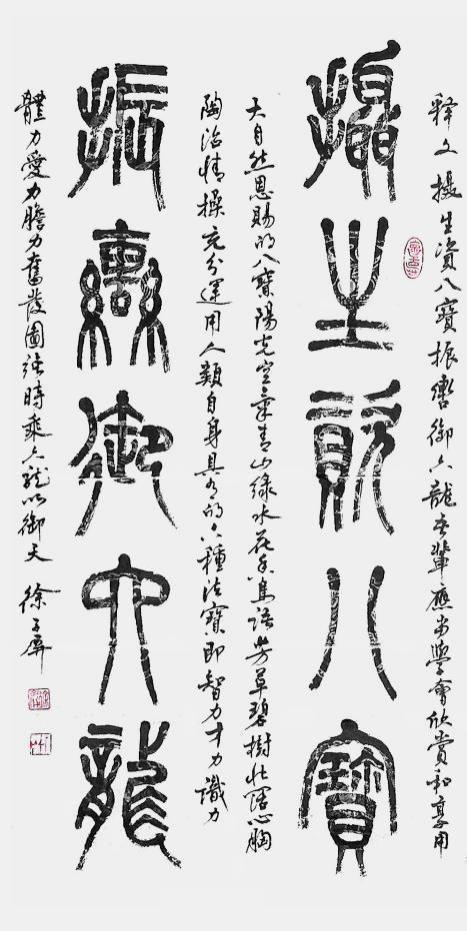 释文攝生資八寶振轡御六龍吾輩應當學會欣賞和享用
攝生資八寶
大自然恩賜的八寶陽光空氣青山綠水花香鳥語芳草碧樹壯闊心胸
陶冶情操充分運用人類自身具有的六種法寶即智力才力識力
振轡御六龍
體力愛力膽力奮發圖强時乘六龍以御天 徐